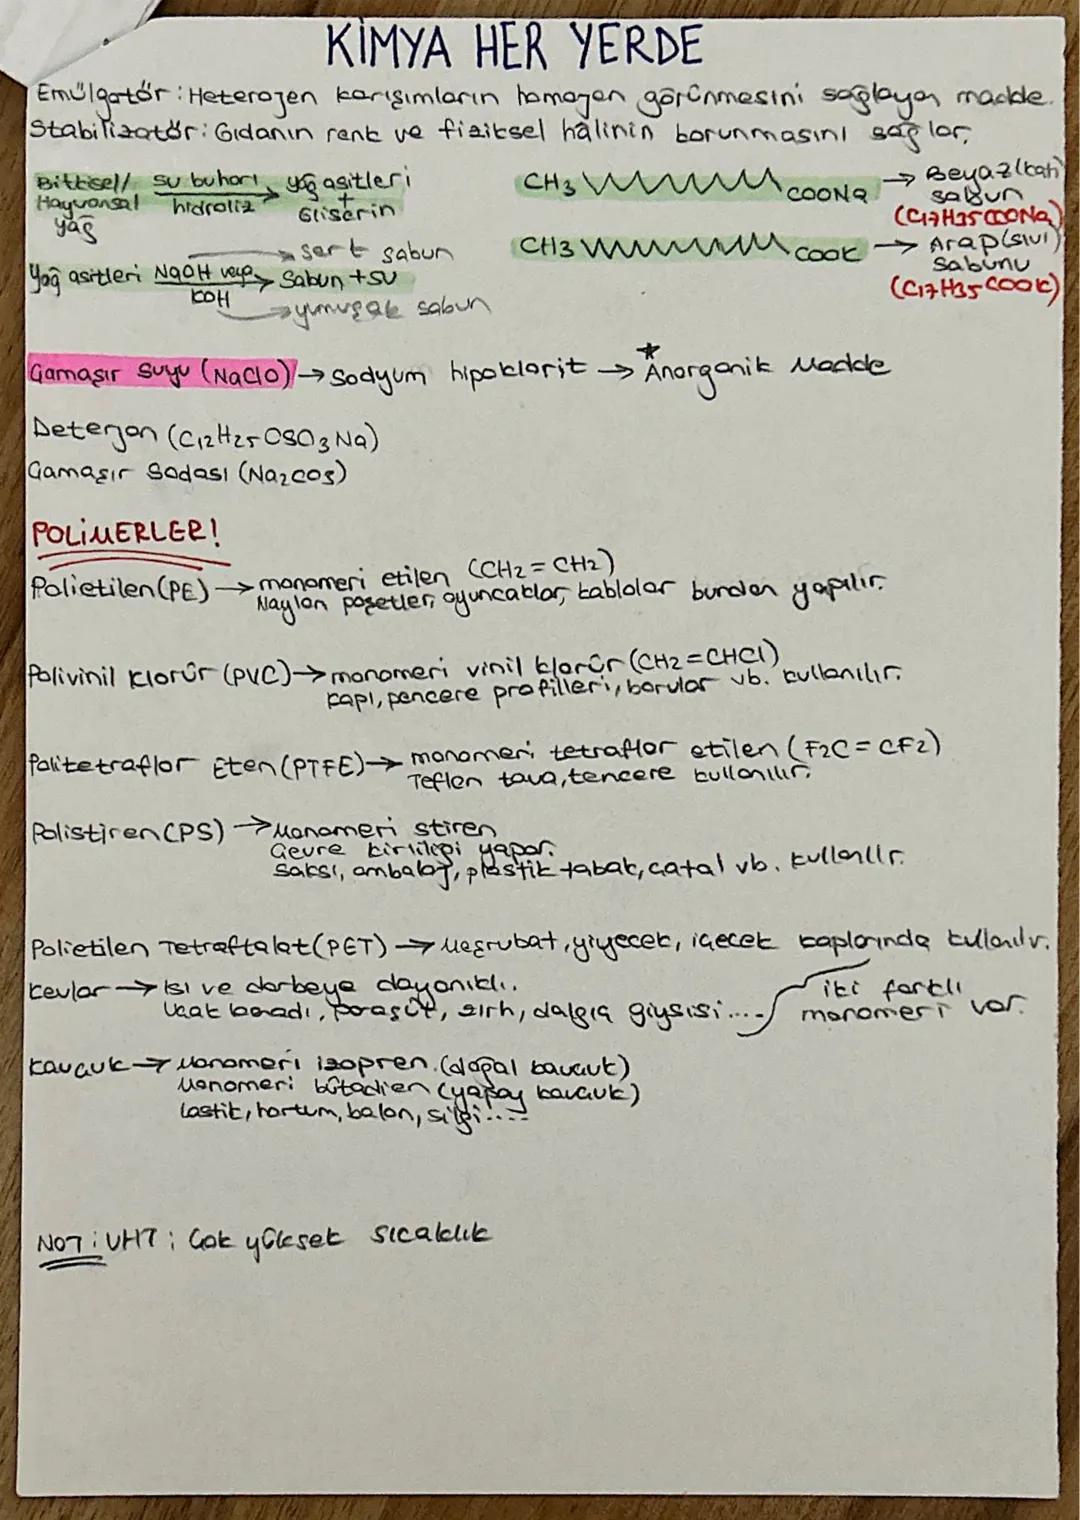 KİMYA HER YERDE
Emülgatör: Heterojen karışımların homojen görünmesini sağlayan madde.
Stabilizatör: Gıdanın renk ve fiziksel hâlinin korunmasını sağlar.
Bitkisel/ Hayvansal yağ su buharı hidroliz yağ asitleri + Gliserin
CH3 COONa → Beyaz (katı) sabun
(C17H35COONa)
CH3 COOK → Arap (sıvı) sabunu
(C17H35COOK)
→ sert sabun
Yağ asitleri NaOH veya KOH → Sabun + su
→ yumuşak sabun
Çamaşır Suyu (NaClO) → Sodyum hipoklorit → Anorganik Madde
Deterjan (C12H25OSO3Na)
Çamaşır Sodası (Na2CO3)
POLİMERLER!
Polietilen (PE) → monomeri etilen (CH2=CH2)
Naylon poşetler, oyuncaklar, kablolar bundan yapılır.
Polivinil Klorür (PVC) → monomeri vinil klorür (CH2=CHCl)
Kapı, pencere profilleri, borular vb. kullanılır.
Politetraflor Eten (PTFE) → monomeri tetraflor etilen (F2C=CF2)
Teflen tava, tencere kullanılır.
Polistiren (PS) → Monomeri stiren
Çevre kirliliği yapar.
Saksı, ambalaj, plastik tabak, çatal vb. kullanılır.
Polietilen Tetraftalat (PET) → Meşrubat, yiyecek, içecek kaplarında kullanılır.
Kevlar → Isı ve darbeye dayanıklı.
Uçak kanadı, paraşüt, zırh, dalgıç giysisi....
iki farklı
monomeri var.
Kauçuk → Monomeri izopren (doğal kauçuk)
Monomeri bütadien (yapay kauçuk)
Lastik, hortum, balon, silgi....
NOT: UHT; Çok yüksek sıcaklık